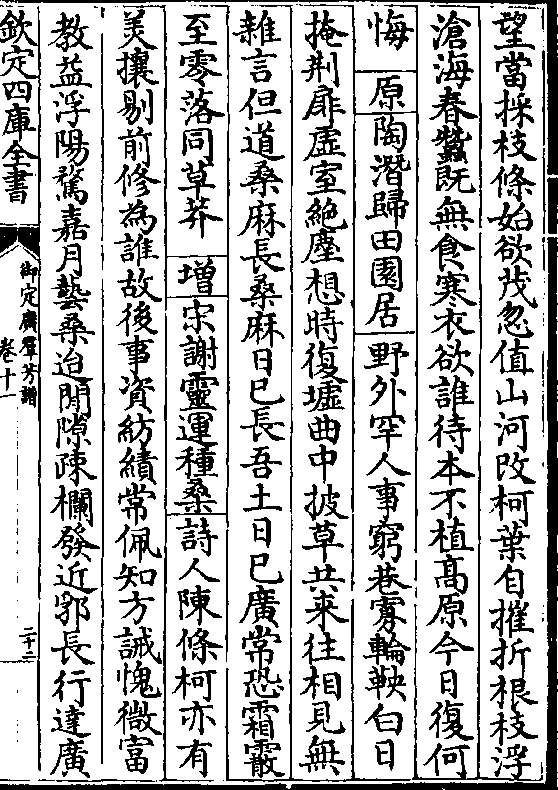 望當採枝條始欲茂忽值山河改柯葉自摧折根枝浮
滄海春蠶既無食寒衣欲誰待本不植髙原今日復何
悔 原 陶潛歸田園居 野外罕人事窮巷寡輪鞅白日
掩荆扉虚室絶塵想時復墟曲中披草共來往相見無
雜言但道桑麻長桑麻日已長吾土日已廣常恐霜霰
至零落同草莽 増 宋謝靈運種桑 詩人陳條柯亦有
美攘剔前修為誰故後事資紡績常佩知方誡愧微富
教益浮陽騖嘉月藝桑迨間隙疎欄發近郛長行達廣
欽定四庫全書
御定廣羣芳譜
卷十一
二十二